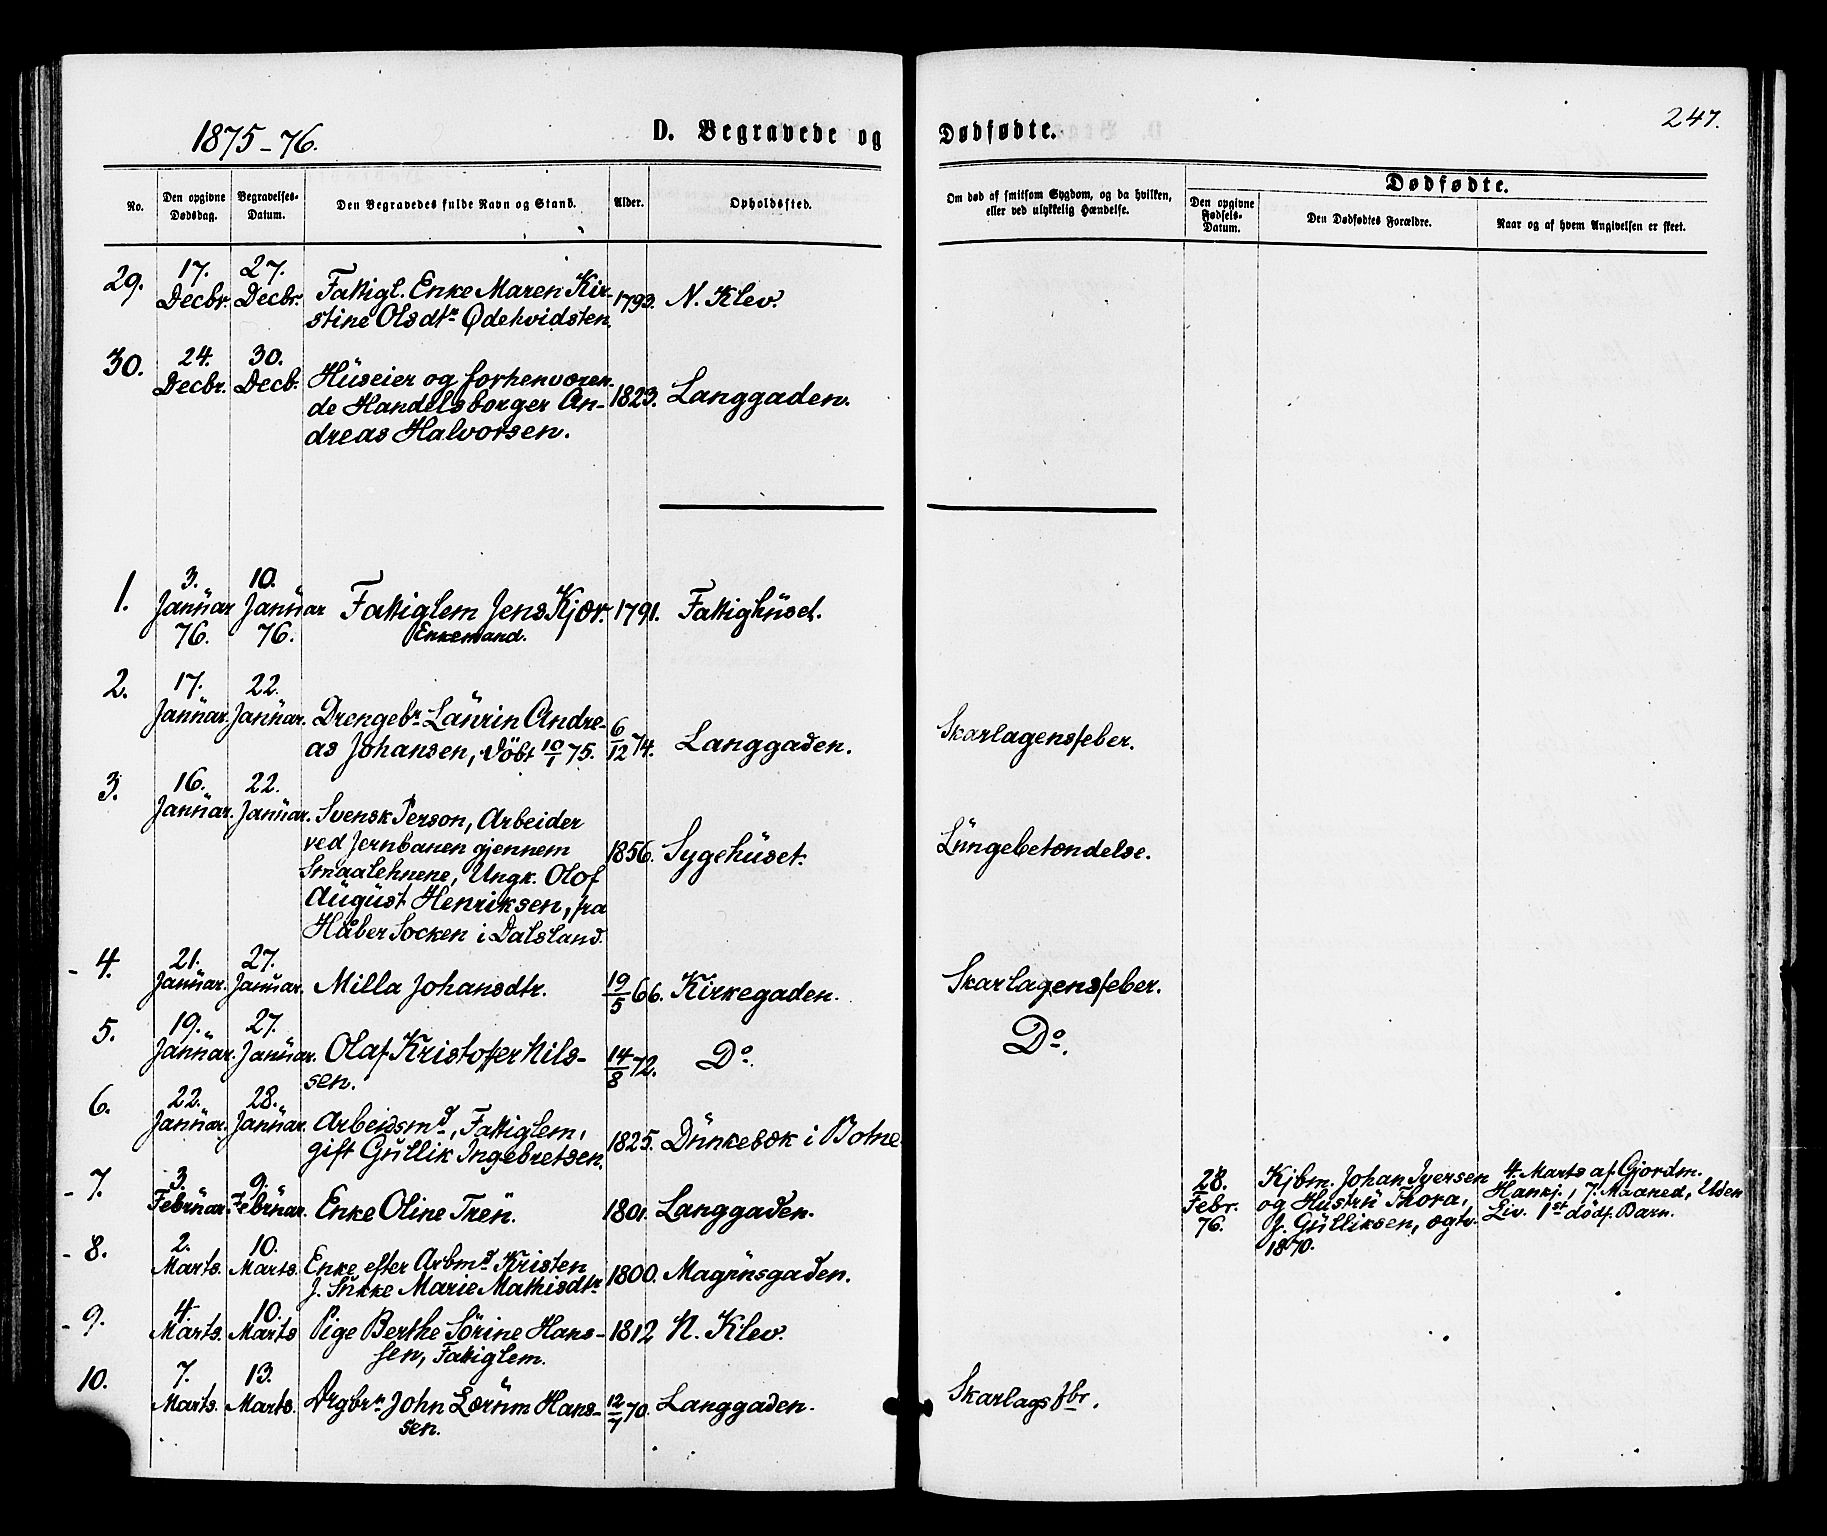 1875-76.
D. Begravede og Dødfødte.
247.
No.
Den opgivne Dødsdag.
Begravelses-Datum.
Den Begravedes fulde Navn og Stand.
Alder.
Opholdssted.
Om død af smitsom Sygdom, og da hvilken,
eller ved ulykkelig Hændelse.
Dødfødte.
Den opgivne Fødsels-Datum.
Den Dødfødtes Forældre.
Naar og af hvem Angivelsen er skeet.
29. 17. Decbr. 27. Decbr. Fattigl. Enke Maren Kir-
stine Olsdtr Ødekvidsten. 1793. N. Klev.
30. 24. Decbr. 30. Decb. Hüseier og forhenværen-
de Handelsborger An- 1823. Langgaden.
dreas Halvorsen.
1. 3. Janüar 76. 10. Janüar 76. Fattiglem Jens Kjær. 1791. Fattighüset.
Enkemand.
2. 17. Janüar. 22. Janüar. Drengebn Laürin Andre-
as Johansen, døbt 10/1 75. 6/12 74. Langgaden. Skarlagensfeber.
3. 16. Janüar. 22. Janüar. Svensk Person, Arbeider
ved Jernbanen gjennem 1856. Sygehüset. Lüngebetændelse.
Smaalehnene, Ungk. Olof
Aügüst Henriksen, fra
Håber Socken i Dalsland.
4. 21. Janüar. 27. Janüar. Milla Johansdtr. 19/5 66. Kirkegaden. Skarlagensfeber.
5. 19. Janüar. 27. Janüar. Olaf Kristoffer Nils- 14/8 72. Do. Do.
sen.
6. 22. Janüar. 28. Janüar. Arbeidsmd, Fattiglem,
gift Güllik Ingebretsen. 1825. Dünkebæk i Botne
7. 3. Febrüar. 9. Febrüar. Enke Oline Trën. 1801. Langgaden.
28. Febr. 76.
Kjbm. Johan Iversen
og Hüstrü Thora,
f. Gülliksen, ægtv.
1870.
4. Marts af Gjordm.
Hankj., 7. Maaned, Uden
Liv. 1st dødf. Barn.
8. 2. Marts. 10. Marts. Enke efter Arbmd Kristen
J. Sükke Marie Mathisdtr 1800. Magnüsgaden.
9. 4. Marts. 10. Marts Pige Berthe Sørine Hans- 1812 N. Klev.
sen, Fattiglem.
10. 7. Marts. 13. Marts. Drgbrn John Lærüm Hans- 12/7 70. Langgaden. Skarlagsfbr.
sen.